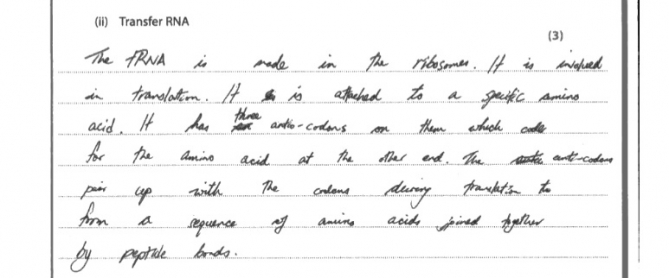 (ii) Transfer RNA
(3)
The tRNA is made in the ribosomes. It is involved
in translation. It is attached to a specific amino
acid. It has three antio-codons on them which code
for the amino acid at the other end. The anti-codons
pair up with the codons during translation to
from a sequence of amino acids joined together
by peptide bonds.